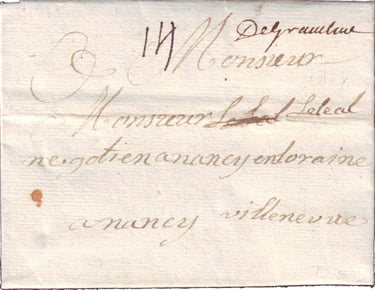 De Gramline
14 Monsieur
Monsieur Leleal Leleal
negotien a nancy en loraine
a nancy villenevue